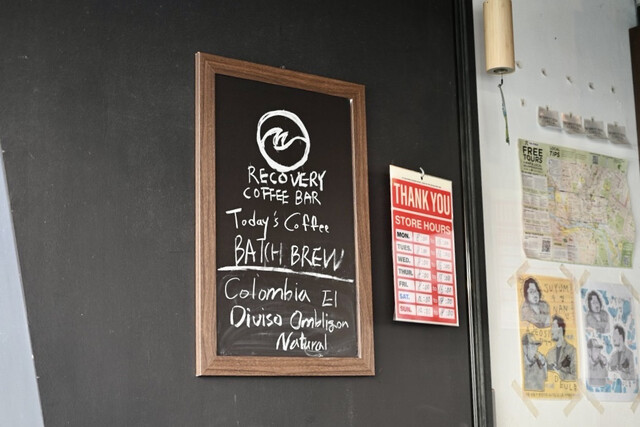 RECOVERY
COFFEE BAR
Today's Coffee
BATCH BREW
Colombia El
Diviso Ombligon
Natural
THANK YOU
STORE HOURS
MON.
TUES.
WED.
THUR.
FRI.
SAT.
SUN.
FREE
TOURS
TIPS